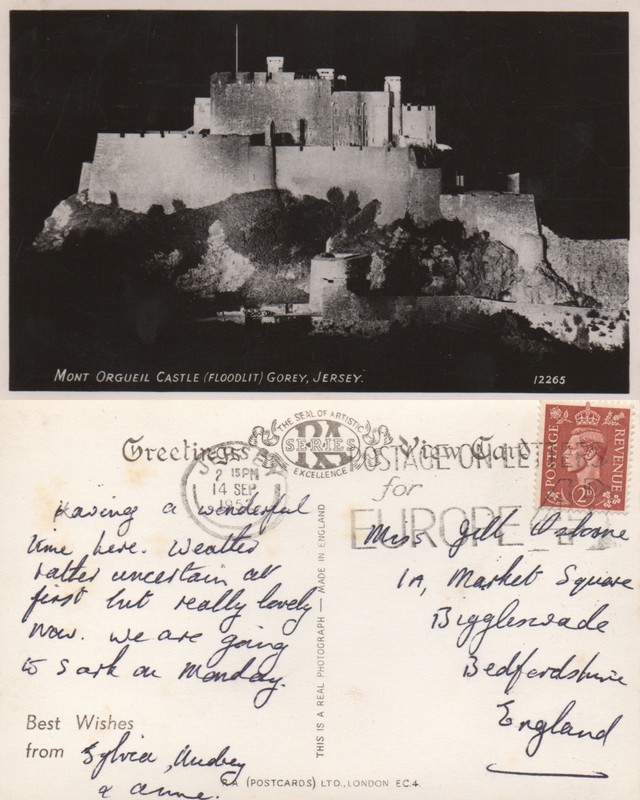 MONT ORGUEIL CASTLE (FLOODLIT) GOREY, JERSEY.
12265
Greetings
THE SEAL OF ARTISTIC
RA
SERIES
EXCELLENCE
View Card
JERSEY
2 15PM
14 SEP
POSTAGE ON
for
EUROPE
POSTAGE
REVENUE
2D
Having a wonderful
time here. Weather
rather uncertain at
first but really lovely
now. We are going
to Sark on Monday.
Best Wishes
from Sylvia, Audrey
& Anne.
THIS IS A REAL PHOTOGRAPH — MADE IN ENGLAND
Miss Gill Osborne
1A, Market Square
Biggleswade
Bedfordshire
England
R.A. (POSTCARDS) LTD., LONDON E.C.4.